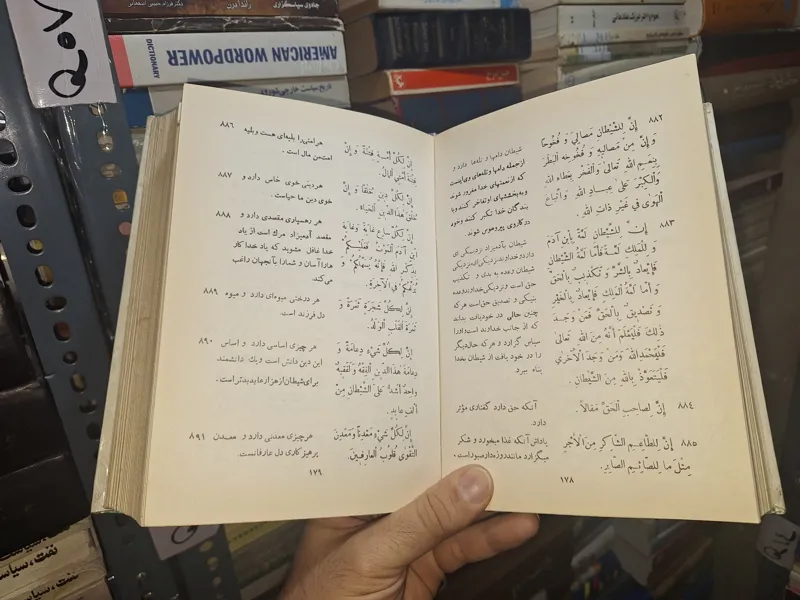 جادوی سیاستگزاری
راندا برن
AMERICAN WORDPOWER
DICTIONARY
تاریخ سیاست خارجی شوروی
۸۸۲
إنَّ لِلشَّيْطانِ مَصالِيَ وَ فُخُوخاً
وَ إنَّ مِنْ مَصالِيهِ وَ فُخُوخِهِ الْبَطَرَ
بِنِعَمِ اللهِ تَعالىٰ وَالْفَخْرَ بِعَطاءِ اللهِ
وَالْكِبْرَ عَلىٰ عِبادِ اللهِ وَ اتِّباعَ
الْهَوىٰ في غَيْرِ ذاتِ اللهِ.
شیطان دامها و تله‌ها دارد و
از جمله دامها و تله‌های وی اینست
که از نعمتهای خدا مغرور شوند
و به بخششهای او تفاخر کنند و با
بندگان خدا تکبر کنند و خود
در کار وی پیر و هوس شوند.
۸۸۳
إنَّ لِلشَّيْطانِ لَمَّةً بِابْنِ آدَمَ
وَ لِلْمَلَكِ لَمَّةً فَأمّا لَمَّةُ الشَّيْطانِ
فَإيعادٌ بِالشَّرِّ وَ تَكْذيبٌ بِالْحَقِّ
وَ أمّا لَمَّةُ الْمَلَكِ فَإيعادٌ بِالْخَيْرِ
وَ تَصْديقٌ بِالْحَقِّ فَمَنْ وَجَدَ
ذٰلِكَ فَلْيَعْلَمْ أنَّهُ مِنَ اللهِ تَعالىٰ
فَلْيَحْمَدِ اللهَ وَ مَنْ وَجَدَ الْاُخْرىٰ
فَلْيَتَعَوَّذْ بِاللهِ مِنَ الشَّيْطانِ.
شیطان بآدمیزاد نزدیکی ای
دارد و خداوند نزدیکی ای، نزدیکی
شیطان وعده به بدی و تکذیب
حق است و نزدیکی خداوند وعده
بنیکی و تصدیق حق است هر که
چنین حالی در خود یافت بداند
که از جانب خداوند است و او را
سپاس گزارد و هر که حال دیگر
را در خود یافت از شیطان بخدا
پناه برد.
۸۸۴
إنَّ لِصاحِبِ الْحَقِّ مَقالاً.
آنکه حق دارد گفتاری مؤثر
دارد.
۸۸۵
إنَّ لِلطّاعِمِ الشّاكِرِ مِنَ الْأجْرِ
مِثْلَ ما لِلصّائِمِ الصّابِرِ.
پاداش آنکه غذا میخورد و شکر
میگزارد مانند روزه دار صبور است.
۱۷۸
إنَّ لِكُلِّ اُمَّةٍ فِتْنَةً وَ إنَّ
فِتْنَةَ اُمَّتي الْمالُ.
هر امتی را بلیه‌ای هست و بلیه
امت من مال است.
۸۸۶
إنَّ لِكُلِّ دينٍ خُلُقاً وَ إنَّ
خُلُقَ هٰذَا الدّينِ الْحَياءُ.
هر دینی خوی خاص دارد و
خوی دین ما حیاست.
۸۸۷
إنَّ لِكُلِّ ساعٍ غايَةً وَ غايَةُ
ابْنِ آدَمَ الْمَوْتُ فَعَلَيْكُمْ
بِذِكْرِ اللهِ فَإنَّهُ يُسَهِّلُكُمْ وَ
يُرَغِّبُكُمْ فِي الْآخِرَةِ.
هر رهسپاری مقصدی دارد و
مقصد آدمیزاد مرگ است از یاد
خدا غافل مشوید که یاد خدا کار
ها را آسان و شما را بآنجهان راغب
می‌کند.
۸۸۸
إنَّ لِكُلِّ شَجَرَةٍ ثَمَرَةً وَ
ثَمَرَةُ الْقَلْبِ الْوَلَدُ.
هر درختی میوه‌ای دارد و میوه
دل فرزند است.
۸۸۹
إنَّ لِكُلِّ شَيْءٍ دِعامَةً وَ
دِعامَةُ هٰذَا الدّينِ الْفِقْهُ وَ لَفَقيهٌ
واحِدٌ أشَدُّ عَلَى الشَّيْطانِ مِنْ
ألْفِ عابِدٍ.
هر چیزی اساسی دارد و اساس
این دین دانش است و یک دانشمند
برای شیطان از هزار عابد بدتر است.
۸۹۰
إنَّ لِكُلِّ شَيْءٍ مَعْدِناً وَ مَعْدِنُ
التَّقْوىٰ قُلُوبُ الْعارِفينَ.
هر چیزی معدنی دارد و معدن
پرهیزکاری دل عارفانست.
۸۹۱
۱۷۹
نفت، سیاست